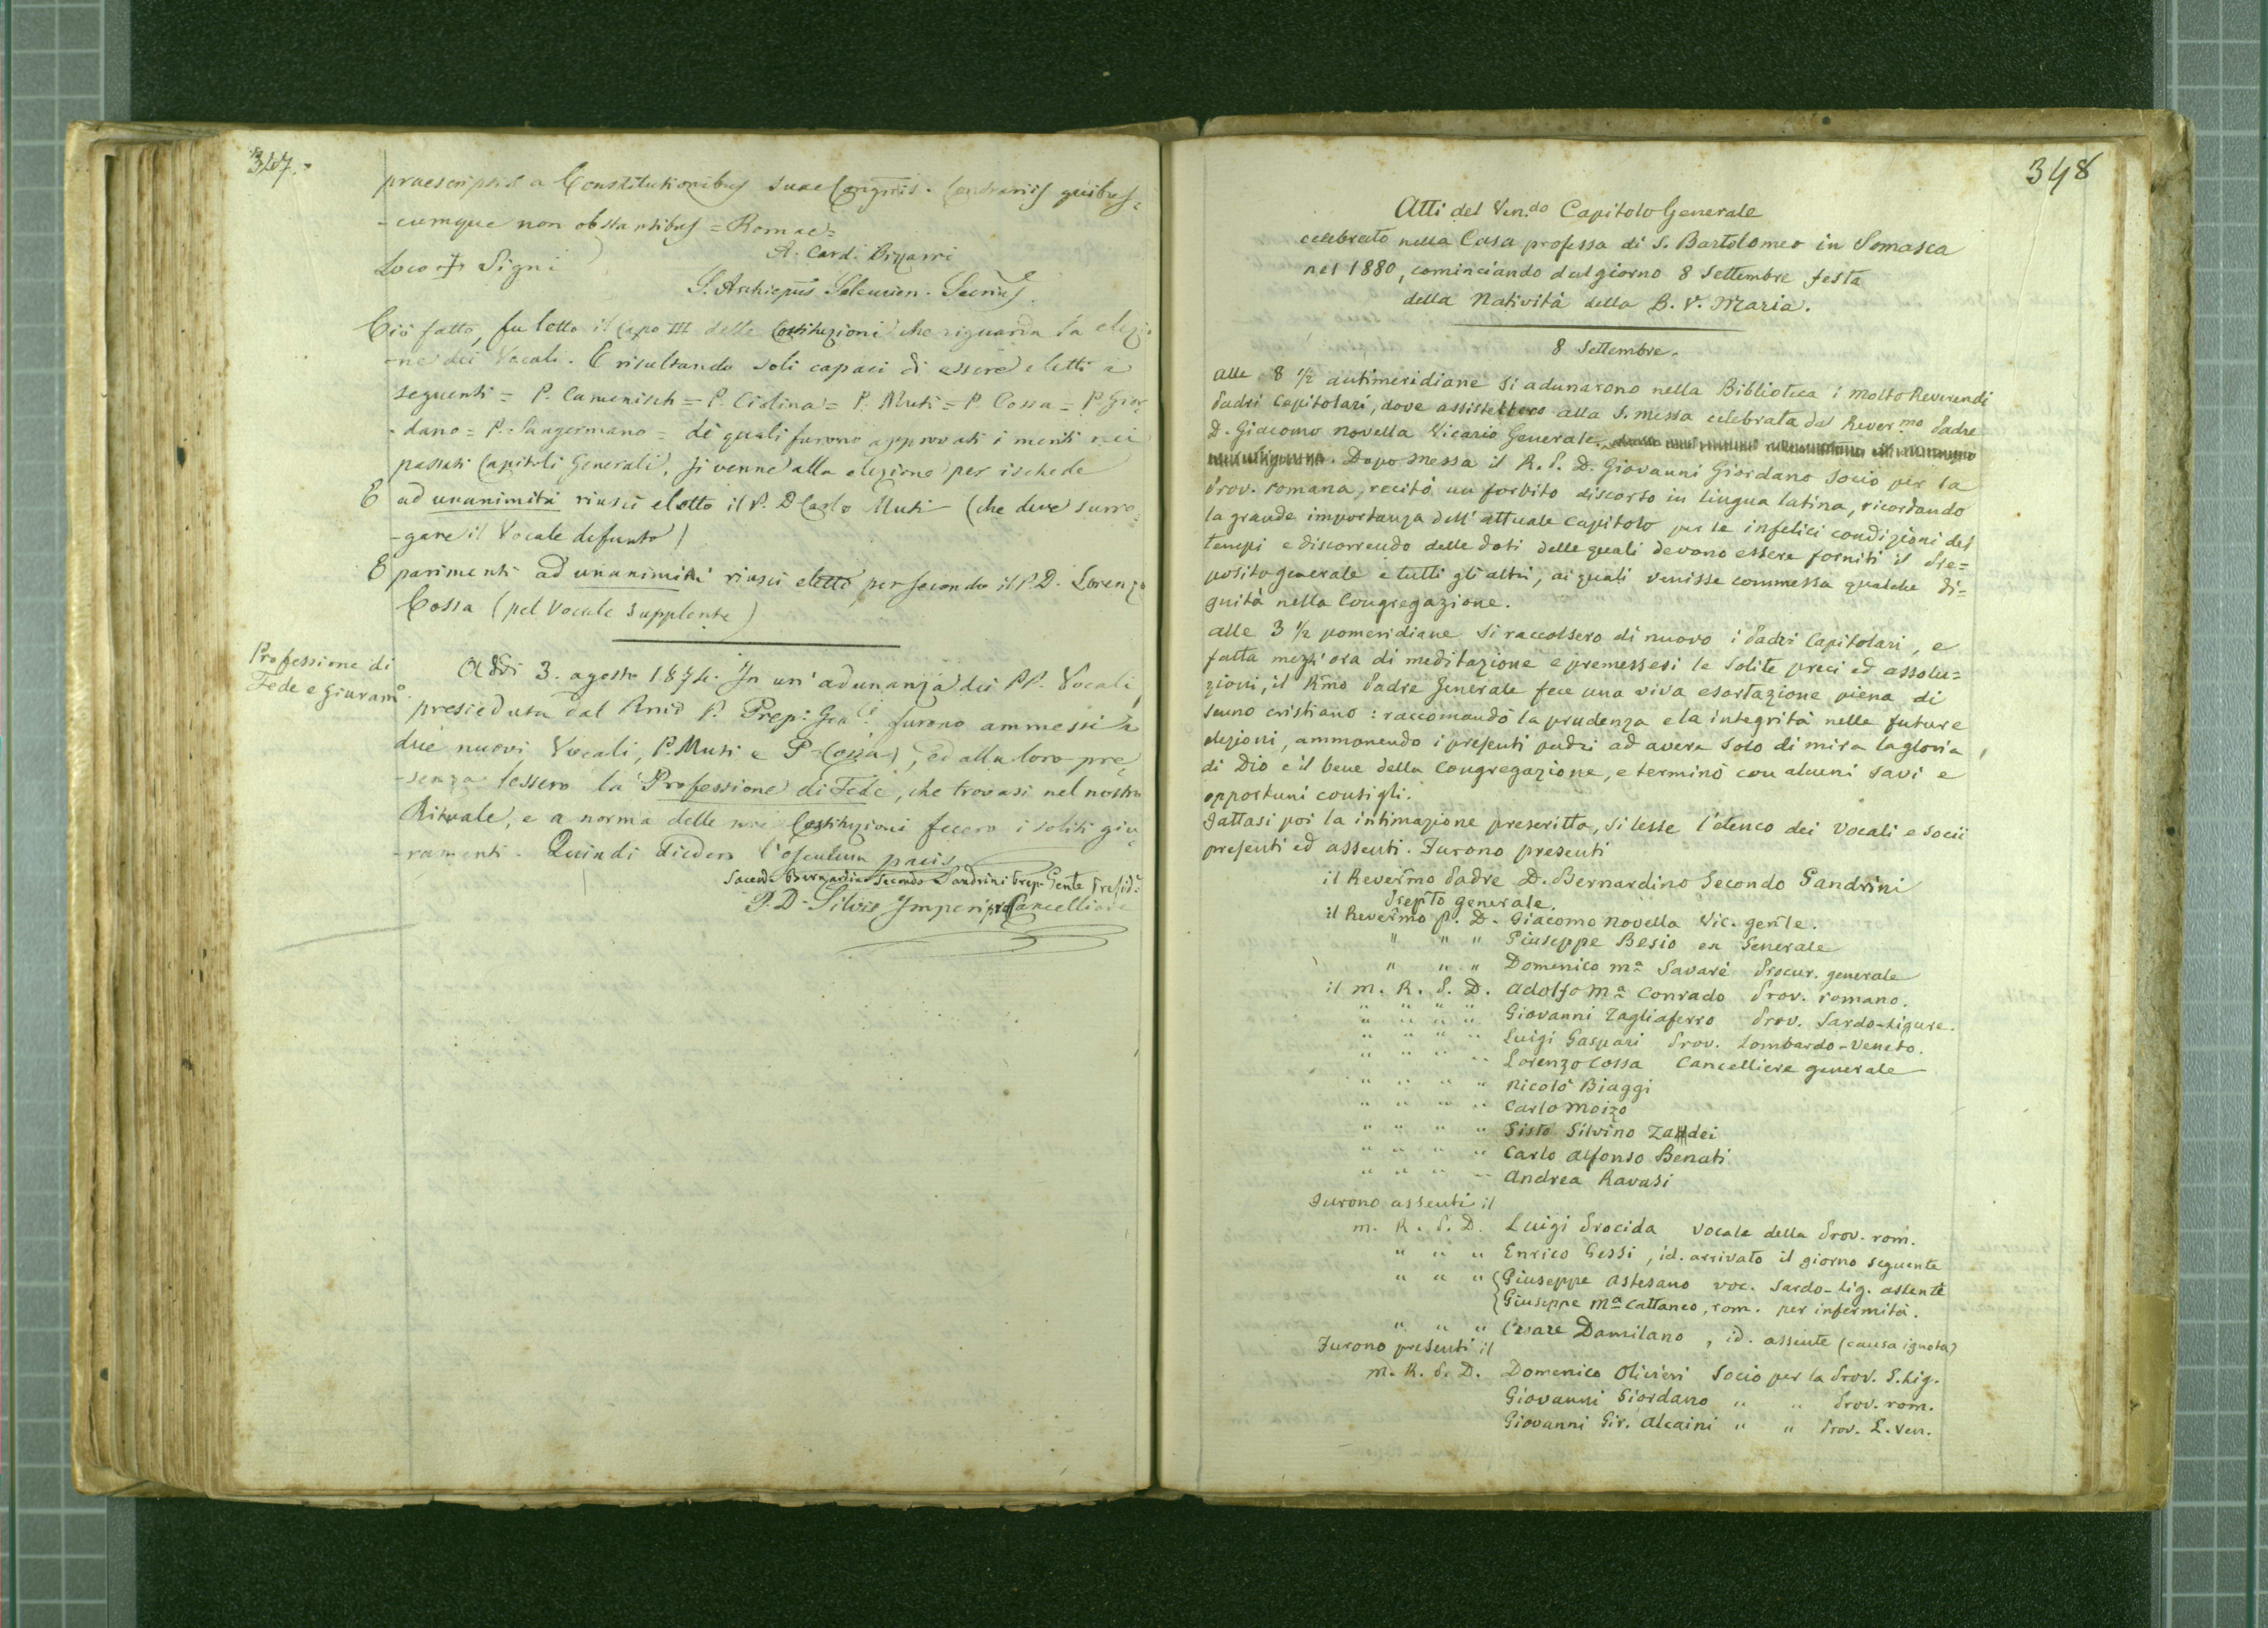 347.
praescriptis a Constitutionibus suae Congñis. Contrariis quibus=
-cumque non obstantibus = Romae =
A. Card. Bizzarri
Loco + Signi
S. Archiepũs Seleucien. Secrius.
Ciò fatto, fu letto il Capo III delle Costituzioni che riguarda la elezio
-ne dei Vocali. E risultando soli capaci di essere eletti i
seguenti = P. Camenisch = P. Ciolina = P. Muti = P. Cossa = P. Gior
-dano = P. Sangermano = di quali furono approvati i meriti nei
passati Capitoli Generali, si venne alla elezione per ischede
E ad unanimità riuscì eletto il P. D. Carlo Muti (che deve surro=
-gare il Vocale defunto)
E parimenti ad unanimità riuscì eletto per secondo il P. D. Lorenzo
Cossa (pel Vocale Supplente)
Professione di
Fede e giuram.o
Addì 3. agosto 1874. In un'adunanza dei PP. Vocali,
presieduta dal Rmo P. Prep: Gen.li furono ammessi i
due nuovi Vocali, P. Muti e P. Cossa, ed alla loro pre=
-senza lessero la Professione di Fede, che trovasi nel nostro
Rituale, e a norma delle Costituzioni fecero i soliti giu=
-ramenti. Quindi diedero l'osculum pacis
Sacerd. Bernardino Secondo Sandrini Prep. Gen̄le Presid.e
P. D. Silvio Imperi pro Cancelliere
348
Atti del Ven.do Capitolo Generale
celebrato nella Casa professa di S. Bartolomeo in Somasca
nel 1880, cominciando dal giorno 8 Settembre festa
della Natività della B. V. Maria.
8 Settembre.
Alle 8 1/2 antimeridiane si adunarono nella Biblioteca i Molto Reverendi
Padri Capitolari, dove assistettero alla S. Messa celebrata dal Rever.mo Padre
D. Giacomo Novella Vicario Generale.
Dopo Messa il R. P. D. Giovanni Giordano Socio per la
Prov. romana, recitò un forbito discorso in lingua latina, ricordando
la grande importanza dell'attuale Capitolo per le infelici condizioni dei
tempi e discorrendo delle doti delle quali devono essere forniti il Pre=
posito generale e tutti gli altri, ai quali venisse commessa qualche di=
gnità nella Congregazione.
Alle 3 1/2 pomeridiane si raccolsero di nuovo i Padri Capitolari, e
fatta mezz'ora di meditazione e premessesi le solite preci ed assolu=
zioni, il Rm̃o Padre Generale fece una viva esortazione piena di
senno cristiano: raccomandò la prudenza e la integrità nelle future
elezioni, ammonendo i presenti padri ad avere solo di mira la gloria
di Dio e il bene della Congregazione, e terminò con alcuni savi e
opportuni consigli.
Fattasi poi la intimazione prescritta, si lesse l'elenco dei Vocali e Socii
presenti ed assenti. Furono presenti
il Rever̃mo Padre D. Bernardino Secondo Sandrini
Prep̃to generale.
il Rever̃mo P. D. Giacomo Novella Vic. gen̄le.
" " " Giuseppe Besio ex Generale
" " " Domenico M.a Savarè Procur. generale
il M. R. P. D. Adolfo M.a Conrado Prov. romano.
" " " " Giovanni Tagliaferro Prov. Sardo-Ligure.
" " " " Luigi Gaspari Prov. Lombardo-Veneto.
" " " " Lorenzo Cossa Cancelliere generale
" " " " Nicolò Biaggi
" " " " Carlo Moizo
" " " " Sisto Silvino Zandei
" " " " Carlo Alfonso Benati
" " " " Andrea Ravasi
Furono assenti il
M. R. P. D. Luigi Procida Vocale della Prov. rom.
" " " Enrico Gessi, id. arrivato il giorno seguente
" " " { Giuseppe Astesano voc. Sardo-Lig. assente
{ Giuseppe M.a Cattaneo, rom. per infermità.
" " " Cesare Damilano, id. assente (causa ignota)
Furono presenti il
M. R. P. D. Domenico Olivieri Socio per la Prov. S. Lig.
Giovanni Giordano " " Prov. rom.
Giovanni Gir. Alcaini " " Prov. L. Ven.